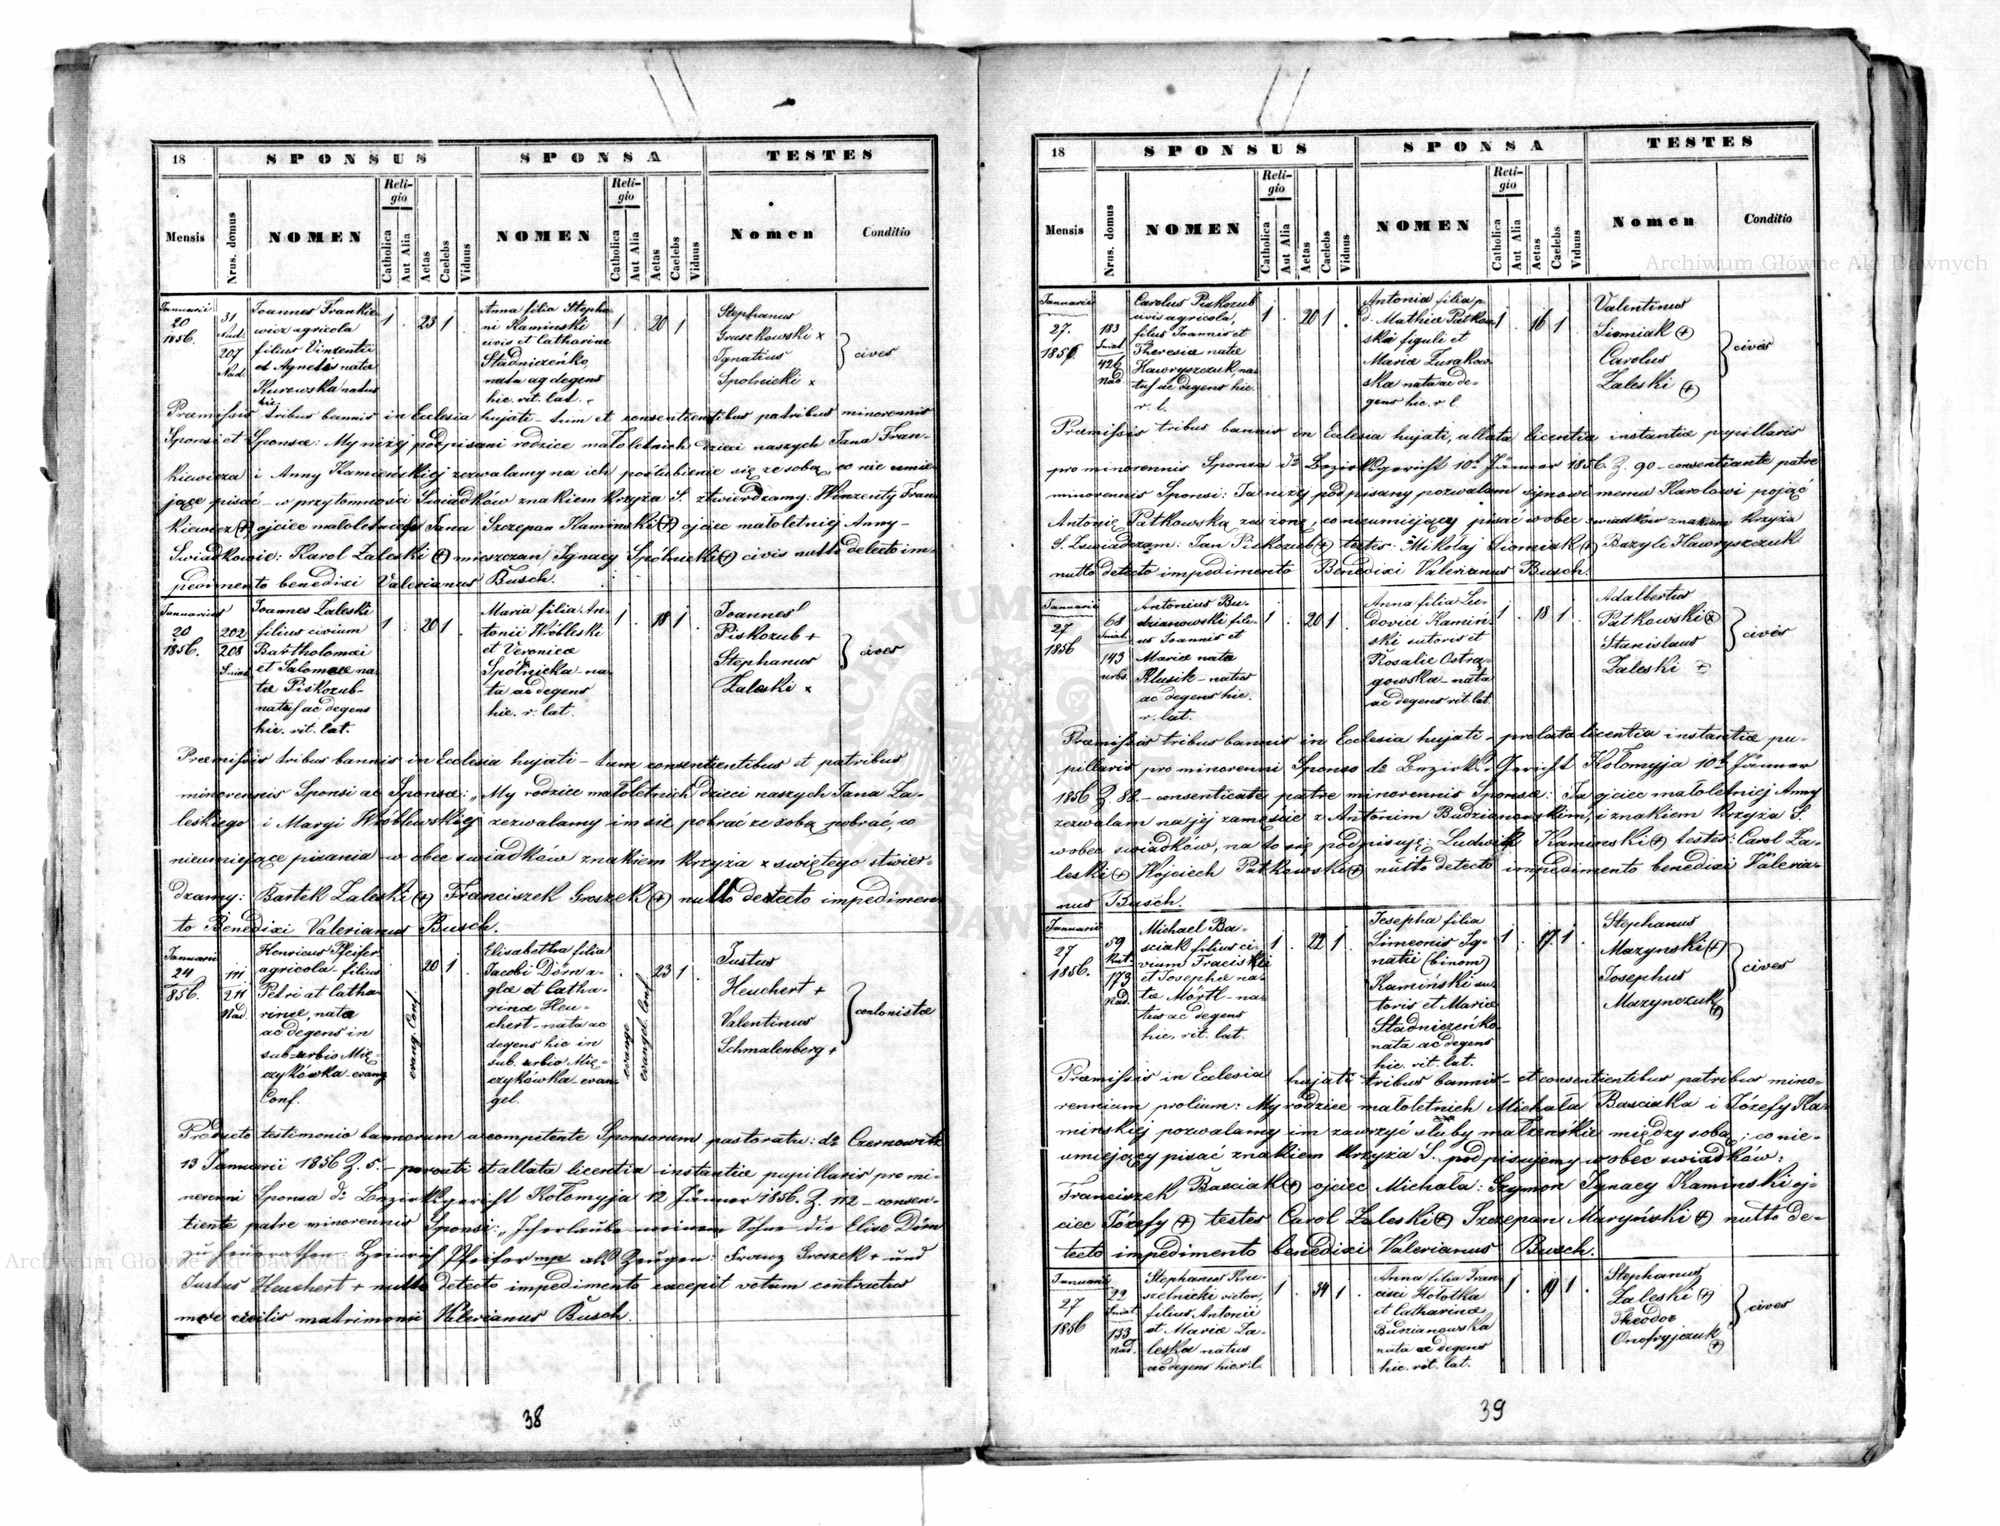 18 SPONSUS SPONSA TESTES
Mensis Nrus. domus NOMEN Religio Catholica Aut Alia Aetas Caelebs Viduus NOMEN Religio Catholica Aut Alia Aetas Caelebs Viduus Nomen Conditio
Januarii 20 1856.
31 Nad. 207 Nad.
Joannes Frankie
wicz agricola
filius Vinzentii
et Agnetis nata
Kurowska natus
hic
1 . 23 1
Anna filia Stepha
ni Kaminski
civis et Catharina
Stadniczeńko
nata ac degens
hic. rit. lat.
1 . 20 1
Stephanus
Gruszkowski x
Ignatius
Spolnicki x
cives
Præmissis tribus bannis in Ecclesia hujati - tum et consentientibus patribus minorennis
Sponsi et Sponsæ: My niżej podpisani rodzice małoletnich dzieci naszych Jana Fran-
kiewicza i Anny Kamińskiej zezwalamy na ich poślubienie się ze sobą, co nie umie
jące pisać - w przytomności Świadków znakiem krzyża S. ztwierdzamy: Winzenty Fran
kiewicz (+) ojciec małoletniego Jana Szczepan Kaminski (+) ojciec małoletniej Anny -
Swiadkowie: Karol Zaleski (+) mieszczan Ignacy Spólnicki (+) civis nullo detecto im-
pedimento benedixi Valerianus Busch.
Januarius 20 1856.
202 208 Sniat.
Joannes Zaleski
filius civium
Bartholomæi
et Salomeæ na
tæ Piskozub-
natus ac degens
hic. rit. lat.
1 . 20 1 .
Maria filia An
tonii Wróbleski
et Veronicæ
Spolnicka - na
ta ac degens
hic. r. lat.
1 . 18 1 .
Joannes
Piskozub +
Stephanus
Zaleski x
cives
Præmissis tribus bannis in Ecclesia hujati - tum consentientibus et patribus
minorennis Sponsi ac Sponsæ: „My rodzice małoletnich dzieci naszych Jana Za-
leskiego i Maryi Wróblewskiej zezwalamy im sie pobrać ze sobą pobrać, co
nieumiejące pisania - w obec swiadków znakiem krzyża z swiętego stwier-
dzamy: Bartek Zaleski (+) Franciszek Groszek (+) nullo detecto impedimen
to Benedixi Valerianus Busch.
Januarii 24 856.
111 211 Nad.
Henricus Pfeifer
agricola - filius
Petri at Catha-
rinæ, nata
ac degens in
sub-urbio Mię-
czykówka - evang
Conf.
evang. Conf.
20 1
Elisabetha filia
Jacobi Dörn a-
glæ et Catha-
rinæ Heu-
chert - nata ac
degens hic in
sub. urbio Mię-
czykówka - evan
gel.
evange
evangel. Conf.
23 1 .
Justus
Heuchert +
Valentinus
Schmalenberg +
conlonistæ
Producto testimonio bannorum a competente Sponsorum pastoratu: dto Czernowitz
13 Januarii 1856 Z. 5. - porouti et allata licentia instantiæ pupillaris pro mi-
norenni Sponsa dto Bezirksgericht Kołomyja 12 Jänner 1856. Z. 112 - consen-
tiente patre minorennis Sponsi: „Ich erlaube meinem Sohne die Elise Dörn
zu heurathen - Heinrich Pfeifer mp als Zeugen: Franz Groszek + und
Justus Heuchert + nullo detecto impedimento excepit votum contractus
more civilis matrimonii Valerianus Busch.
38
18 SPONSUS SPONSA TESTES
Mensis Nrus. domus NOMEN Religio Catholica Aut Alia Aetas Caelebs Viduus NOMEN Religio Catholica Aut Alia Aetas Caelebs Viduus Nomen Conditio
Januarii 27. 1856.
183 Sniat. 426 Nad.
Carolus Piskozub
civis agricola,
filius Joannis et
Theresiæ natæ
Hawryszczuk, na-
tus ac degens hic.
r. l.
1 . 20 1 .
Antonia filia p.
d. Mathiæ Patkow
ski figuli et
Mariæ Zurakow-
ska nata ac de-
gens hic. r l.
1 . 16 1 .
Valentinus
Siomiak (+)
Carolus
Zaleski (+)
cives
Præmissis tribus bannis in Ecclesia hujati, allata licentia instantiæ pupillaris
pro minorennis Sponsa dto Bezirksgericht 10t Jänner 1856. Z. 90 - consentiante patre
minorennis Sponsi: Ja niżej podpisany pozwalam synowi memu Karolowi pojąć
Antonię Patkowską za żonę, co nieumiejący pisać w obec świadków znakiem krzyża
S. Zświadczam: Jan Piskozub (+) testes: Mikolaj Siomiak (+) Bazyli Hawryszczuk
nullo detecto impedimento Benedixi Valerianus Busch.
Januarii 27 1856
68 Sniat. 143 urbs.
Antonius Bu-
dzianowski fili-
us Joannis et
Mariæ nata
Klusik - natus
ac degens hic.
r. lat.
1 . 20 1 .
Anna filia Lu-
dovici Kamiń
ski sutoris et
Rosalie Ostra-
gowska - nata
ac degens rit. lat.
1 . 18 1 .
Adalbertus
Patkowski (x)
Stanislaus
Zaleski +
cives
Præmissis tribus bannis in Ecclesia hujati - prolata licentia instantiæ pu-
pillaris pro minorenni Sponso dto Bezirks-Gericht Kołomyja 10t Jänner
1856 Z. 88. - consentiente patre minorennis Sponsæ: Ja ojciec małoletniej Anny
zezwalam na jej zamęście z Antonim Budzianowskim, i znakiem krzyża S.
w obec swiadków, na to się podpisuję: Ludwik Kaminski (+) testes: Carol Za-
leski (+) Wojciech Patkowski (+) nullo detecto impedimento benedixi Valeria-
nus Busch.
Januarii 27 1856.
59 173 Nad.
Michael Ba-
sciak filius ci-
vium Fracisci
et Josephæ na-
tæ Mörtl - na-
tus ac degens
hic. rit. lat.
1 . 22 1 .
Josepha filia
Simeonis Ig-
natii (binom)
Kamiński su-
toris et Mariæ
Stadniczeńko
nata ac degens
hic. rit. lat.
1 . 17 1
Stephanus
Mazynski (+)
Josephus
Mazynczuk (+)
cives
Præmissis in Ecclesia hujati tribus bannis - et consentientibus patribus mino-
rennium prolium: My rodzice małoletnich Michała Basciaka i Józefy Ka
minskiej pozwalamy im zawrzyć śluby małżeńskie między sobą; co nie-
umiejący pisać znakiem krzyża S. podpisujemy w obec swiadków:
Franciszek Basciak (+) ojciec Michała: Szymon Ignacy Kaminski oj-
ciec Józefy (+) testes Carol Zaleski (+) Szczepan Maryński (+) nullo de-
tecto impedimento benedixi Valerianus Busch.
Januarii 27 1856
22 Sniat. 133 Nad.
Stephanus Kru-
szelnicki victor,
filius Antonii
et Mariæ Za-
leska natus
ac degens hic. r. l.
1 . 34 1 .
Anna filia Fran
cisci Hołotka
et Catharinæ
Budzianowska
nata ac degens
hic. rit. lat.
1 . 19 1 .
Stephanus
Zaleski (+)
Theodor
Onofryjczuk (+)
cives
39
Archiwum Główne Akt Dawnych
Archiwum Główne Akt Dawnych